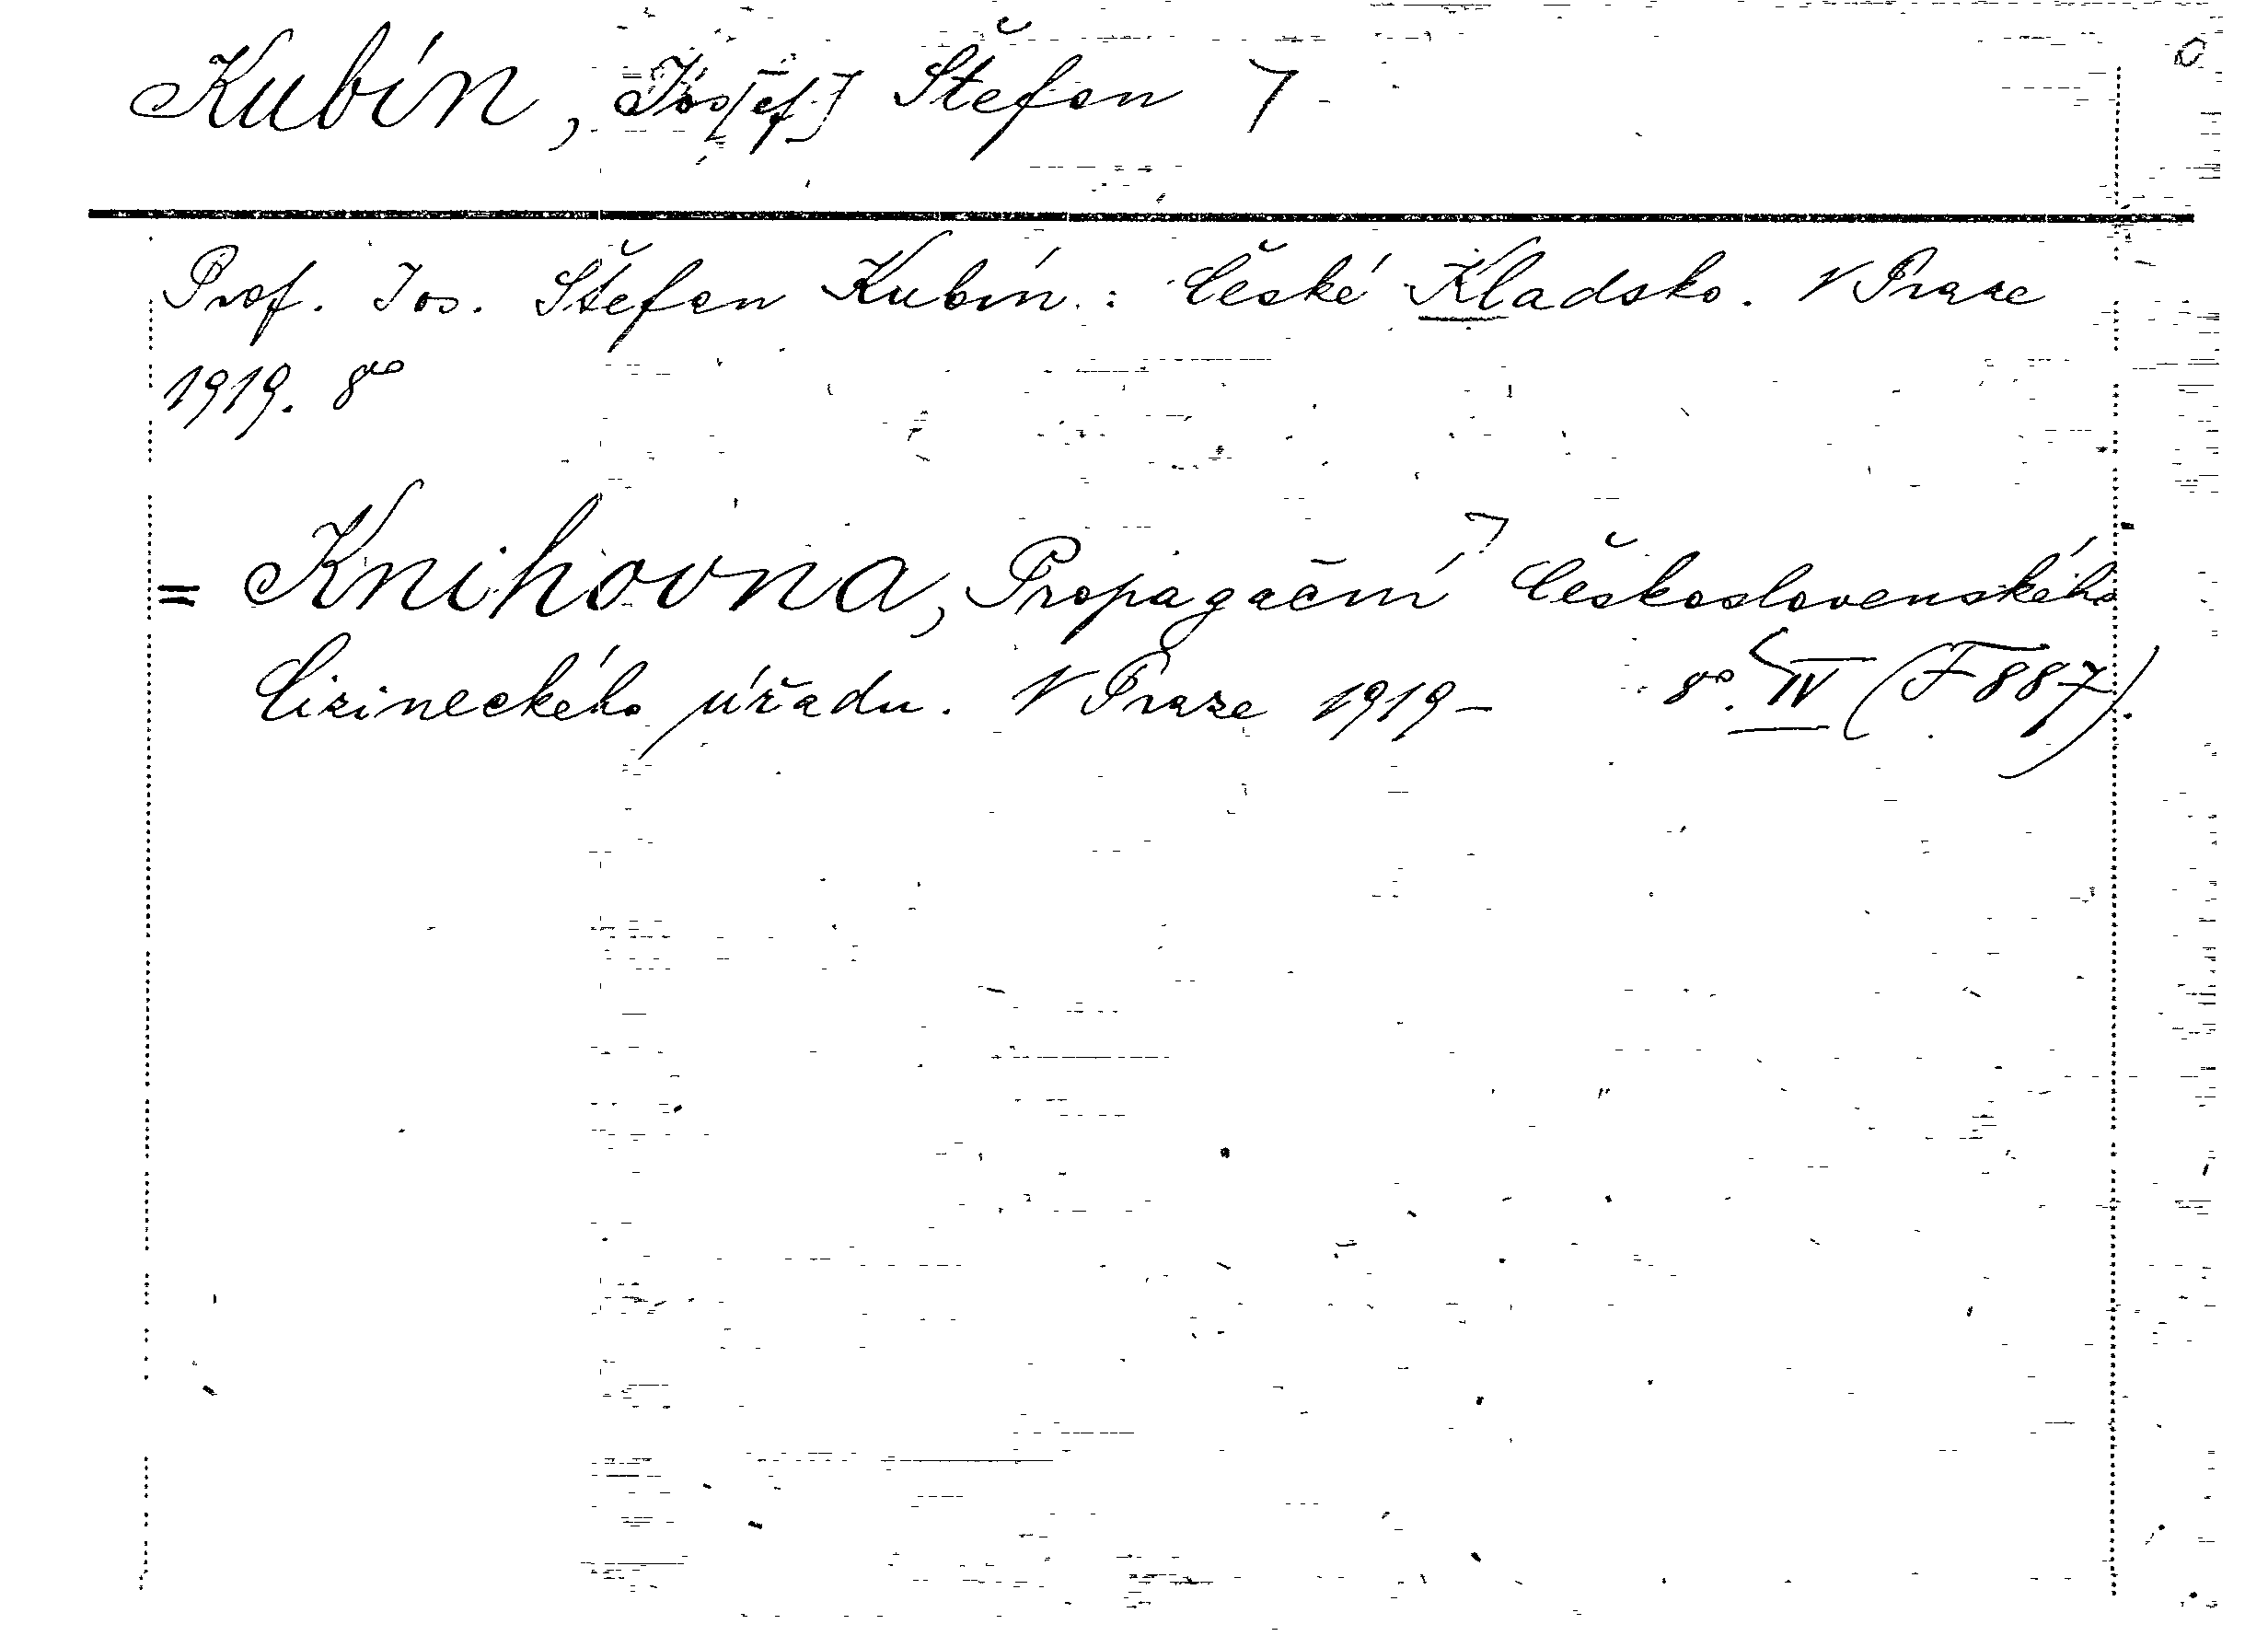 Kubín, Jos[ef] Štefan 7
Prof. Jos. Štefan Kubín: České Kladsko. V Praze
1919. 8°
= Knihovna, Propagační Československého
Cizineckého úřadu. V Praze 1919- 8°. IV (F 887).